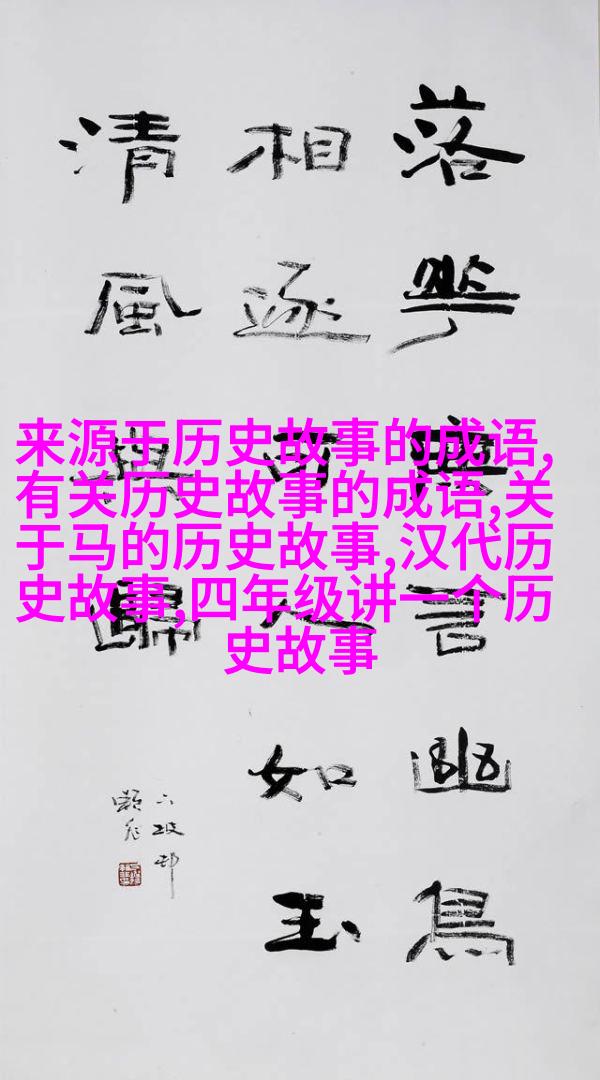 落華無言幽鳥
相逐可人如玉
清風與歸
来源于历史故事的成语,
有关历史故事的成语,关
于马的历史故事,汉代历
史故事,四年级讲一个历
史故事